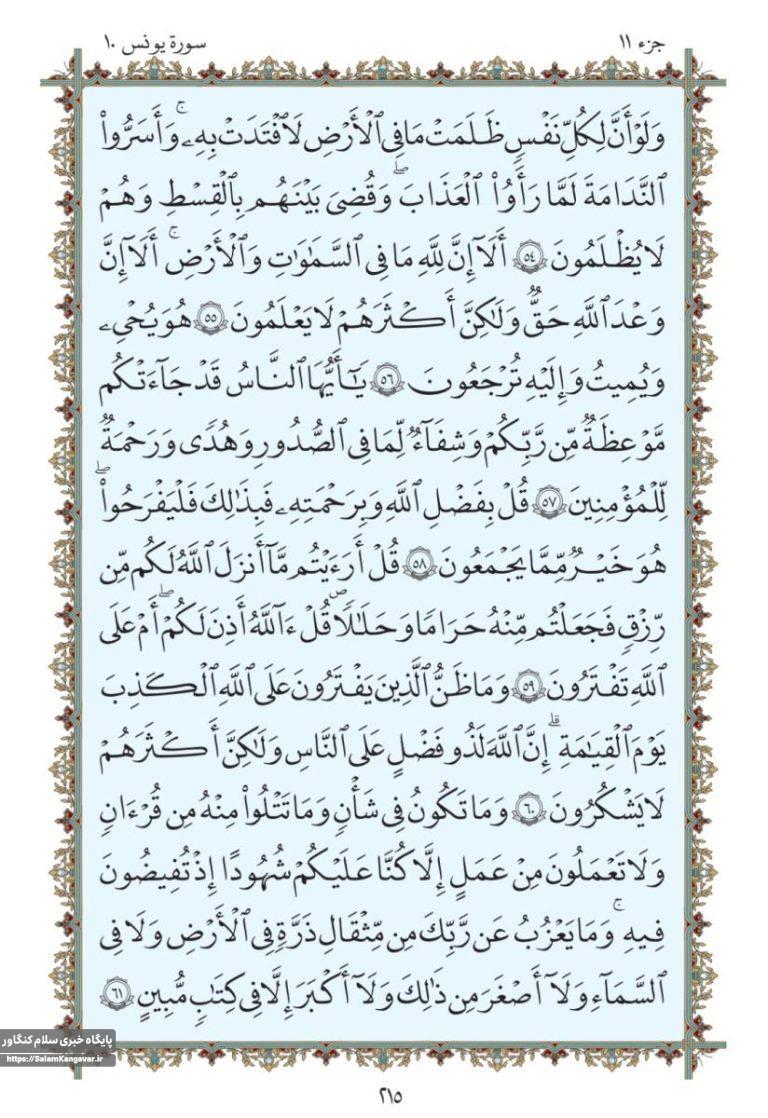 جزء ١١
سورة يونس ١٠
وَلَوْ أَنَّ لِكُلِّ نَفْسٍ ظَلَمَتْ مَا فِي ٱلْأَرْضِ لَٱفْتَدَتْ بِهِۦ ۚ وَأَسَرُّوا۟
ٱلنَّدَامَةَ لَمَّا رَأَوُا۟ ٱلْعَذَابَ ۖ وَقُضِيَ بَيْنَهُم بِٱلْقِسْطِ وَهُمْ
لَا يُظْلَمُونَ ٥٤ أَلَآ إِنَّ لِلَّهِ مَا فِي ٱلسَّمَٰوَٰتِ وَٱلْأَرْضِ ۗ أَلَآ إِنَّ
وَعْدَ ٱللَّهِ حَقٌّ وَلَٰكِنَّ أَكْثَرَهُمْ لَا يَعْلَمُونَ ٥٥ هُوَ يُحْيِۦ
وَيُمِيتُ وَإِلَيْهِ تُرْجَعُونَ ٥٦ يَٰٓأَيُّهَا ٱلنَّاسُ قَدْ جَآءَتْكُم
مَّوْعِظَةٌ مِّن رَّبِّكُمْ وَشِفَآءٌ لِّمَا فِي ٱلصُّدُورِ وَهُدًى وَرَحْمَةٌ
لِّلْمُؤْمِنِينَ ٥٧ قُلْ بِفَضْلِ ٱللَّهِ وَبِرَحْمَتِهِۦ فَبِذَٰلِكَ فَلْيَفْرَحُوا۟ ۖ
هُوَ خَيْرٌ مِّمَّا يَجْمَعُونَ ٥٨ قُلْ أَرَءَيْتُم مَّآ أَنزَلَ ٱللَّهُ لَكُم مِّن
رِّزْقٍ فَجَعَلْتُم مِّنْهُ حَرَامًا وَحَلَٰلًا ۖ قُلْ ءَآللَّهُ أَذِنَ لَكُمْ ۖ أَمْ عَلَى
ٱللَّهِ تَفْتَرُونَ ٥٩ وَمَا ظَنُّ ٱلَّذِينَ يَفْتَرُونَ عَلَى ٱللَّهِ ٱلْكَذِبَ
يَوْمَ ٱلْقِيَٰمَةِ ۗ إِنَّ ٱللَّهَ لَذُو فَضْلٍ عَلَى ٱلنَّاسِ وَلَٰكِنَّ أَكْثَرَهُمْ
لَا يَشْكُرُونَ ٦٠ وَمَا تَكُونُ فِي شَأْنٍ وَمَا تَتْلُوا۟ مِنْهُ مِن قُرْءَانٍ
وَلَا تَعْمَلُونَ مِنْ عَمَلٍ إِلَّا كُنَّا عَلَيْكُمْ شُهُودًا إِذْ تُفِيضُونَ
فِيهِ ۚ وَمَا يَعْزُبُ عَن رَّبِّكَ مِن مِّثْقَالِ ذَرَّةٍ فِي ٱلْأَرْضِ وَلَا فِي
ٱلسَّمَآءِ وَلَآ أَصْغَرَ مِن ذَٰلِكَ وَلَآ أَكْبَرَ إِلَّا فِي كِتَٰبٍ مُّبِينٍ ٦١
پایگاه خبری سلام کنگاور
https://SalamKangavar.ir
٢١٥